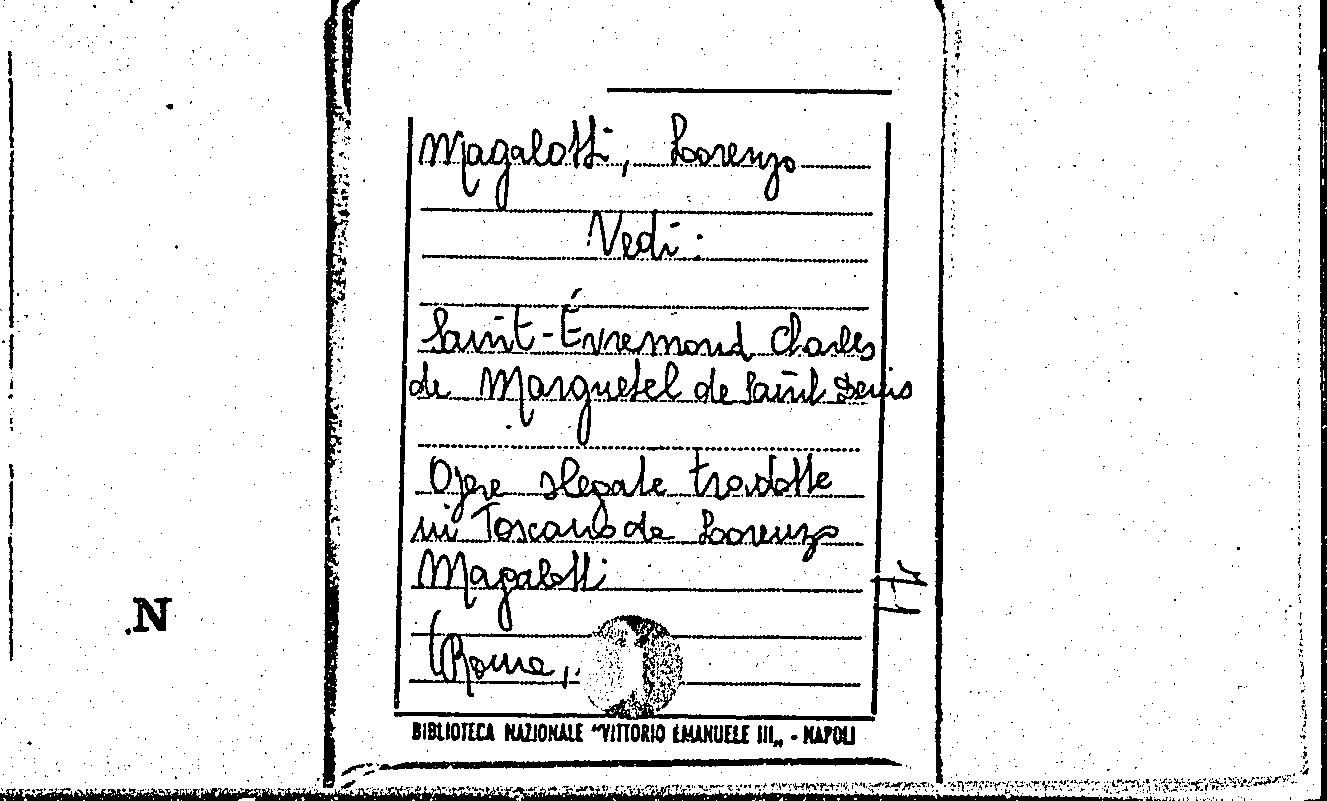 Magalotti, Lorenzo
Vedi:
Saint-Évremond Charles
de Marguetel de Saint Denis
Opere slegate tradotte
in Toscano da Lorenzo
Magalotti
(Roma,
.N
BIBLIOTECA NAZIONALE "VITTORIO EMANUELE III„ - NAPOLI